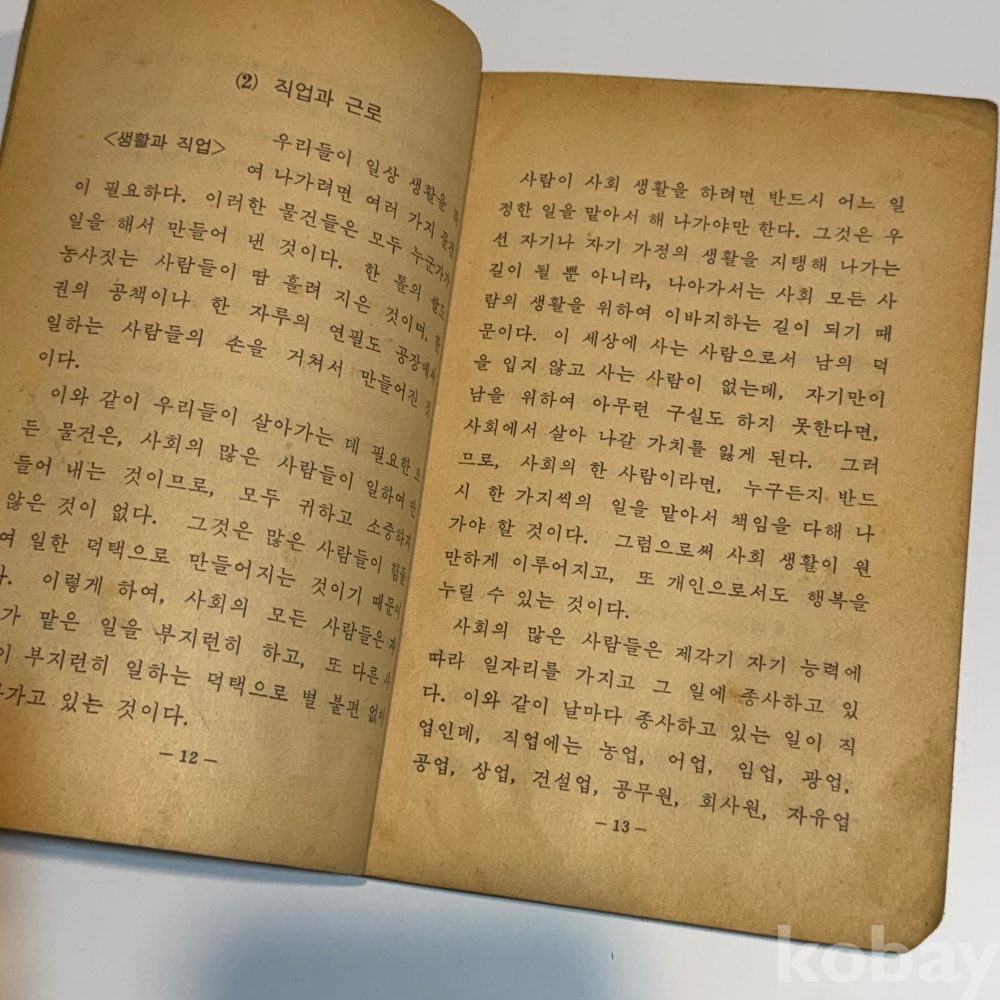 (2) 직업과 근로
<생활과 직업> 우리들이 일상 생활을
여 나가려면 여러 가지 물건
이 필요하다. 이러한 물건들은 모두 누군가가
일을 해서 만들어 낸 것이다. 한 톨의 쌀도
농사짓는 사람들이 땀 흘려 지은 것이며, 한
권의 공책이나 한 자루의 연필도 공장에서
일하는 사람들의 손을 거쳐서 만들어진 것
이다.
이와 같이 우리들이 살아가는 데 필요한 모
든 물건은, 사회의 많은 사람들이 일하여 만
들어 내는 것이므로, 모두 귀하고 소중하지
않은 것이 없다. 그것은 많은 사람들이 힘들
여 일한 덕택으로 만들어지는 것이기 때문이
다. 이렇게 하여, 사회의 모든 사람들은
가 맡은 일을 부지런히 하고, 또 다른 사
이 부지런히 일하는 덕택으로 별 불편 없이
가고 있는 것이다.
— 12 —
사람이 사회 생활을 하려면 반드시 어느 일
정한 일을 맡아서 해 나가야만 한다. 그것은 우
선 자기나 자기 가정의 생활을 지탱해 나가는
길이 될 뿐 아니라, 나아가서는 사회 모든 사
람의 생활을 위하여 이바지하는 길이 되기 때
문이다. 이 세상에 사는 사람으로서 남의 덕
을 입지 않고 사는 사람이 없는데, 자기만이
남을 위하여 아무런 구실도 하지 못한다면,
사회에서 살아 나갈 가치를 잃게 된다. 그러
므로, 사회의 한 사람이라면, 누구든지 반드
시 한 가지씩의 일을 맡아서 책임을 다해 나
가야 할 것이다. 그럼으로써 사회 생활이 원
만하게 이루어지고, 또 개인으로서도 행복을
누릴 수 있는 것이다.
사회의 많은 사람들은 제각기 자기 능력에
따라 일자리를 가지고 그 일에 종사하고 있
다. 이와 같이 날마다 종사하고 있는 일이 직
업인데, 직업에는 농업, 어업, 임업, 광업,
공업, 상업, 건설업, 공무원, 회사원, 자유업
— 13 —
kobay